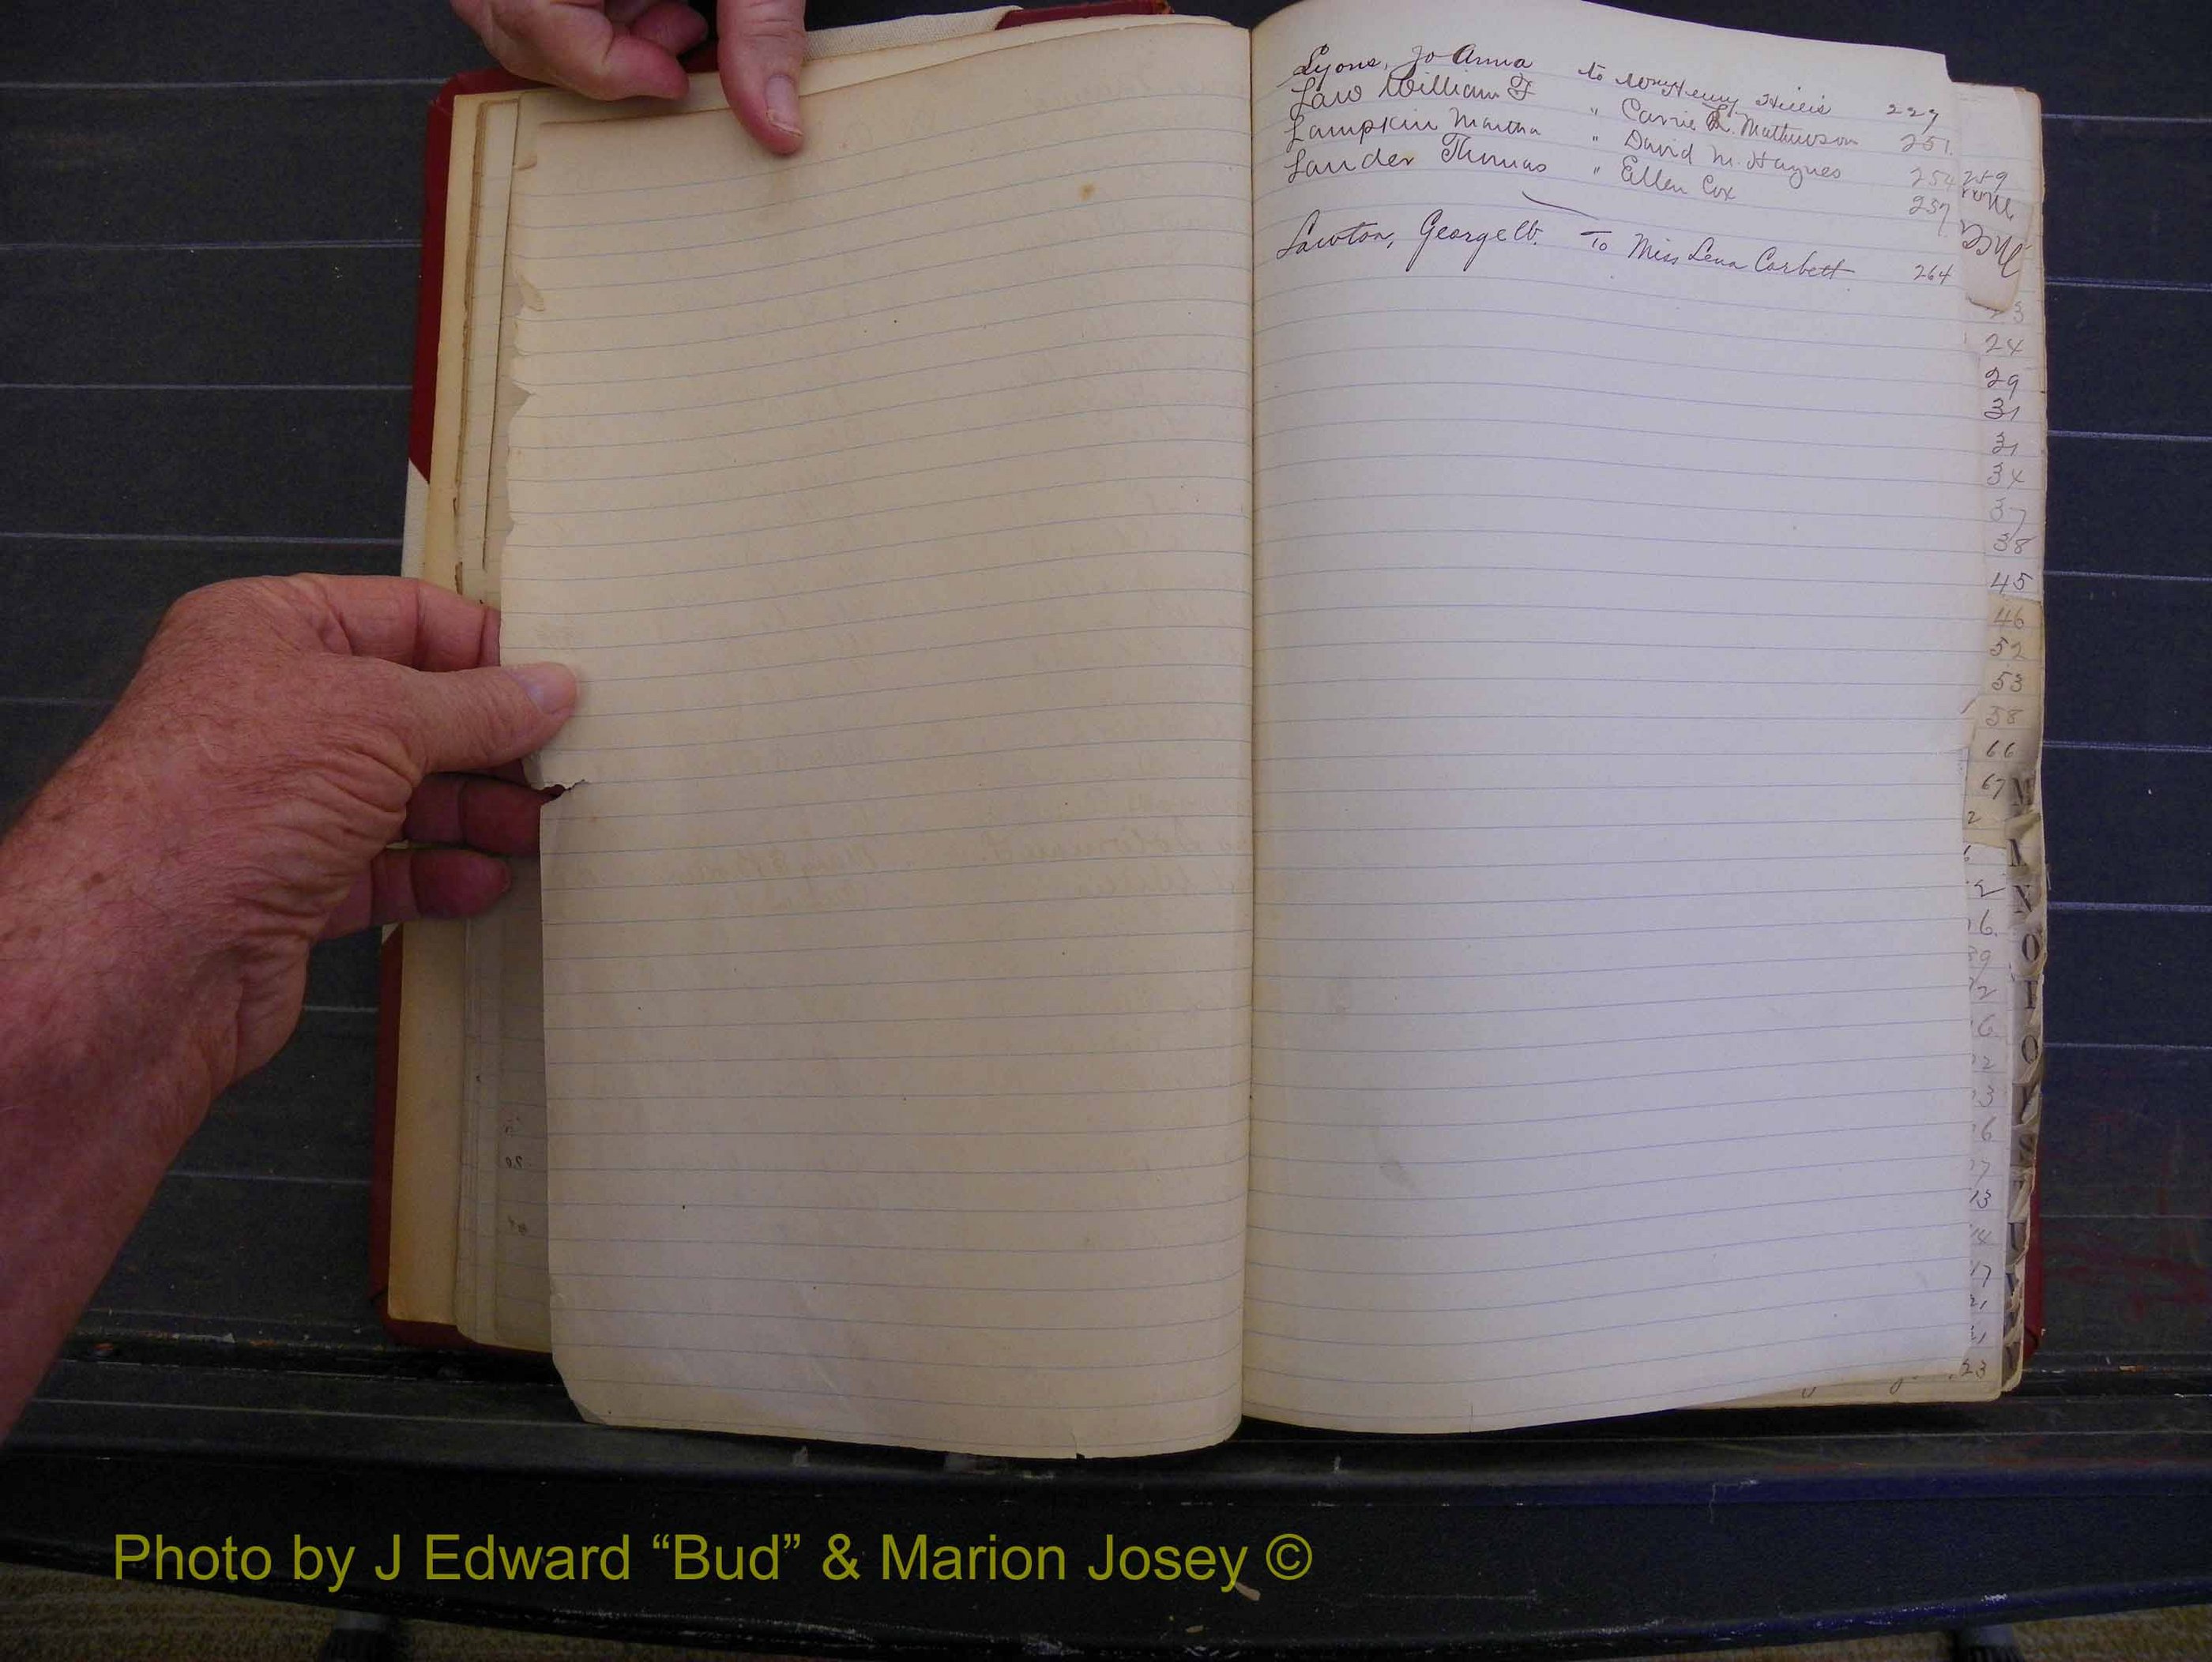 Lyons, Jo Anna to Wm Henry Hillis 229
Law William F " Carrie R. Mathewson 251.
Lampkin Martha " David M. Haynes 254
Lander Thomas " Ellen Cox 257
Lawton, George W. To Miss Lena Corbett 264
259
24
29
31
31
34
37
38
45
46
52
53
58
66
67
2
6
2
6.
39
2
6
2
3
6
7
13
14
17
21
23
M
N
O
P
Q
S
T
U
V
W
Y
20
Photo by J Edward “Bud” & Marion Josey ©